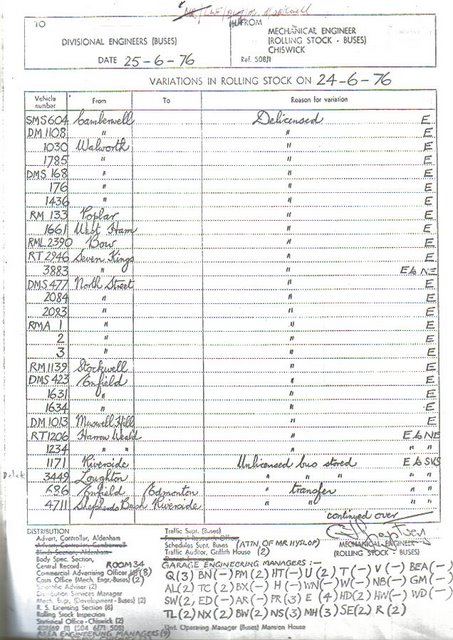 TO
FROM
MECHANICAL ENGINEER
(ROLLING STOCK - BUSES)
CHISWICK
DIVISIONAL ENGINEERS (BUSES)
DATE 25-6-76
Ref. 508/1
VARIATIONS IN ROLLING STOCK ON 24-6-76
Vehicle number From To Reason for variation
SMS 604 Camberwell Delicensed E
DM 1108 " " E
1030 Walworth " E
1785 " " E
DMS 168 " " E
176 " " E
1436 " " E
RM 133 Poplar " E
1661 West Ham " E
RML 2390 Bow " E
RT 2946 Seven Kings " E
3883 " " E to NE
DMS 477 North Street " E
2084 " " E
2083 " " E
RMA 1 " " E
2 " " E
3 " " E
RM 1139 Stockwell " E
DMS 423 Enfield " E
1631 " " E
1634 " " E
DM 1013 Muswell Hill " E
RT 1206 Harrow Weald " E to NE
1234 " " " " "
1171 Riverside Unlicensed bus stored E to SKS
3449 Loughton " " " " "
686 Enfield Edmonton " transfer " "
4711 Shepherds Bush Riverside " " "
continued over
MECHANICAL ENGINEER
(ROLLING STOCK - BUSES)
DISTRIBUTION
Advert. Controller, Aldenham
Body Supt. Section,
Central Record. ROOM 34
Commercial Advertising Officer (8)
Costs Office (Mech. Engr. Buses) (2)
Mech. Engr. (Development-Buses) (2)
R. S. Licensing Section (6)
Rolling Stock Inspection
Statistical Office - Chiswick (2)
AREA ENGINEERING MANAGERS (9)
Traffic Supt. (Buses)
Schedules Supt. Buses (ATTN. OF MR HYSLOP)
Traffic Auditor, Griffith House (2)
GARAGE ENGINEERING MANAGERS :-
Q(3) BN(-) PM(2) HT(-) U(2) T(-) V(-) BEA(-)
AL(2) TC(2) BX(-) H(-) WN(-) W(-) NB(-) GM(-)
SW(2, ED(-) AR(-) PR(3) E(4) HD(2) HW(-) WD(-)
TL(2) NX(2) BW(2) NS(3) MH(3) SE(2) R(2)
Chf. Operating Manager (Buses) Mansion House